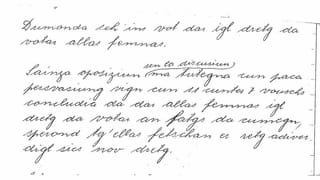 Dumonda sch'ins vot dar igl dretg da
votar allas femnas.
sen la discussiun
Sainza oposiziun ma tutegna cun paca
persvasiung vign cun 11 cunter 7 vouschs
concludia da dar allas femnas igl
dretg da votar an fatgs da cumegn,
sperond tg'ellas fetschan er
digl sies nov dretg.